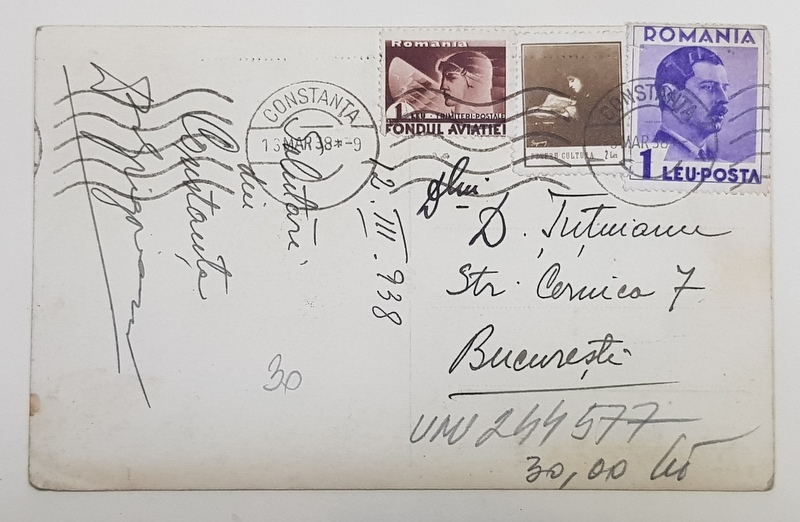 Romania
1 LEU - TRIMITERI-POSTALE
FONDUL AVIATIEI
CULTURA 2 Lei
ROMANIA
1 LEU-POSTA
CONSTANTA
13 MAR 38 *-9
CONSTANTA
MAR 38
Salutări
din
Constanța
12.III.938
Dlui
D. Țițuianu
Str. Cernica 7
București
30
244577
30,00